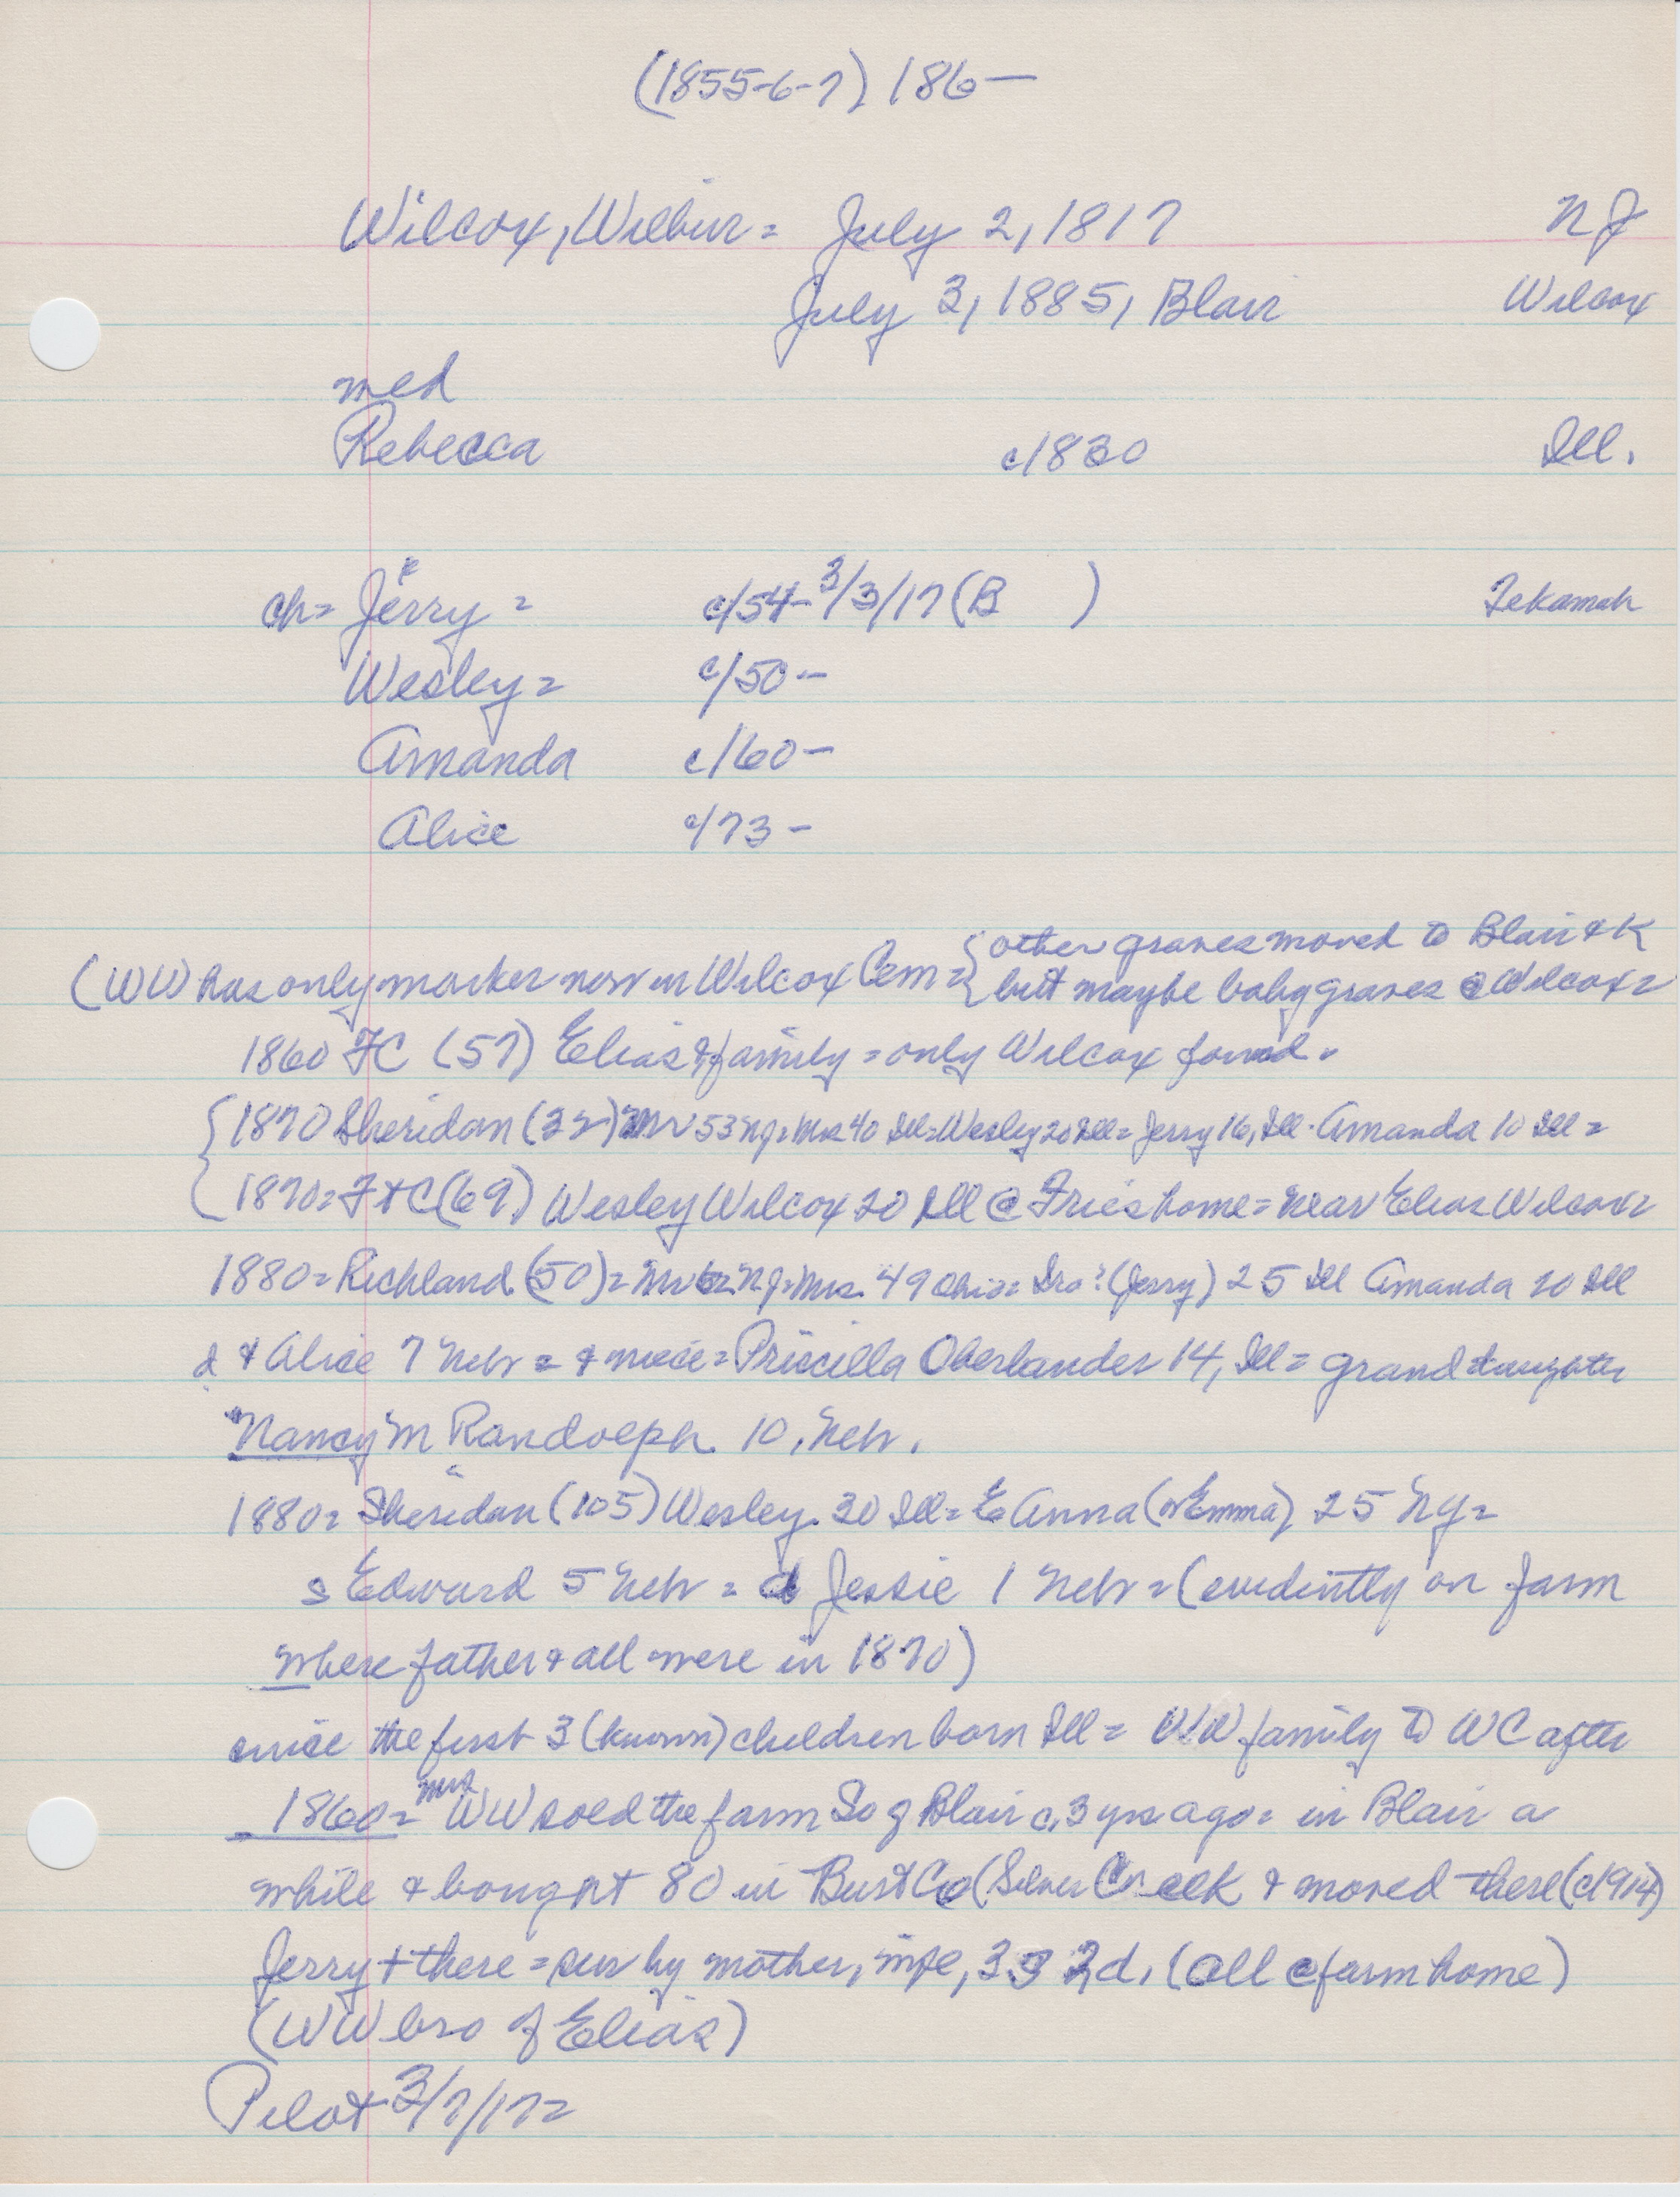 (1855-6-7) 186—
Wilcox, Wilbur = July 2, 1817 NJ
July 3, 1885, Blair Wilcox
med
Rebecca c1830 Ill.
ch = Jerry = c/54- 3/3/17 (B ) Tekamah
Wesley = c/50 -
Amanda c/60 -
Alice c/73 -
(WW has only marker now in Wilcox Cem = { other graves moved to Blair & K
but maybe baby graves @ Wilcox =
1860 FC (57) Elias & family = only Wilcox found.
{ 1870 Sheridan (32) 53 NJ = Mrs 40 Ill = Wesley 20 Ill = Jerry 16, Ill. Amanda 10 Ill =
1870 = FtC (69) Wesley Wilcox 20 Ill @ Frie's home = near Elias Wilcox =
1880 = Richland (50) = NJ = Mrs. 49 Ohio = Ira? (Jerry) 25 Ill Amanda 20 Ill
d & Alice 7 Nebr = & niece = Priscilla Oberlander 14, Ill = granddaughter
"Nancy" M Randolph 10, Nebr.
1880 = Sheridan (105) Wesley 30 Ill = E Anna (or Emma) 25 NY =
s Edward 5 Nebr = d Jessie 1 Nebr = (evidently on farm
where father & all were in 1870)
since the first 3 (known) children born Ill = WW family to WC after
1860 = Mrs WW sold the farm So of Blair c. 3 yrs ago = in Blair a
while & bought 80 in Burt Co (Silver Creek & moved there (c1914)
Jerry + there = sur by mother, wife, 3 s 2 d. (all @ farm home)
(WW bro of Elias)
Pilot 3/7/17 =